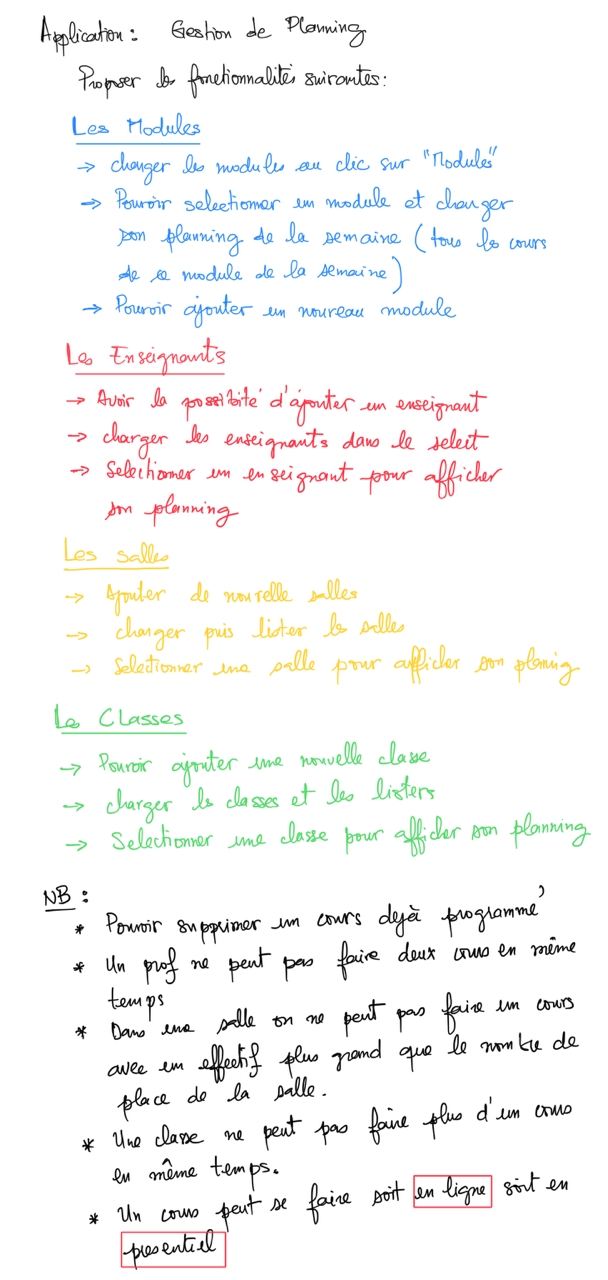 Application : Gestion de Planning
Proposer les fonctionnalités suivantes :
Les Modules
→ charger les modules au clic sur "Modules"
→ Pouvoir selectionner un module et charger
son planning de la semaine (tous les cours
de ce module de la semaine)
→ Pouvoir ajouter un nouveau module
Les Enseignants
→ Avoir la possibité d'ajouter un enseignant
→ charger les enseignants dans le select
→ Selectionner un enseignant pour afficher
son planning
Les salles
→ Ajouter de nouvelle salles
→ charger puis lister les salles
→ Selectionner une salle pour afficher son planing
Les Classes
→ Pouvoir ajouter une nouvelle classe
→ charger les classes et les listers
→ Selectionner une classe pour afficher son planning
NB :
* Pouvoir supprimer un cours dejà programmé
* Un prof ne peut pas faire deux cours en même
temps
* Dans une salle on ne peut pas faire un cours
avec un effectif plus grand que le nombre de
place de la salle.
* Une classe ne peut pas faire plus d'un cours
en même temps.
* Un cours peut se faire soit en ligne soit en
presentiel